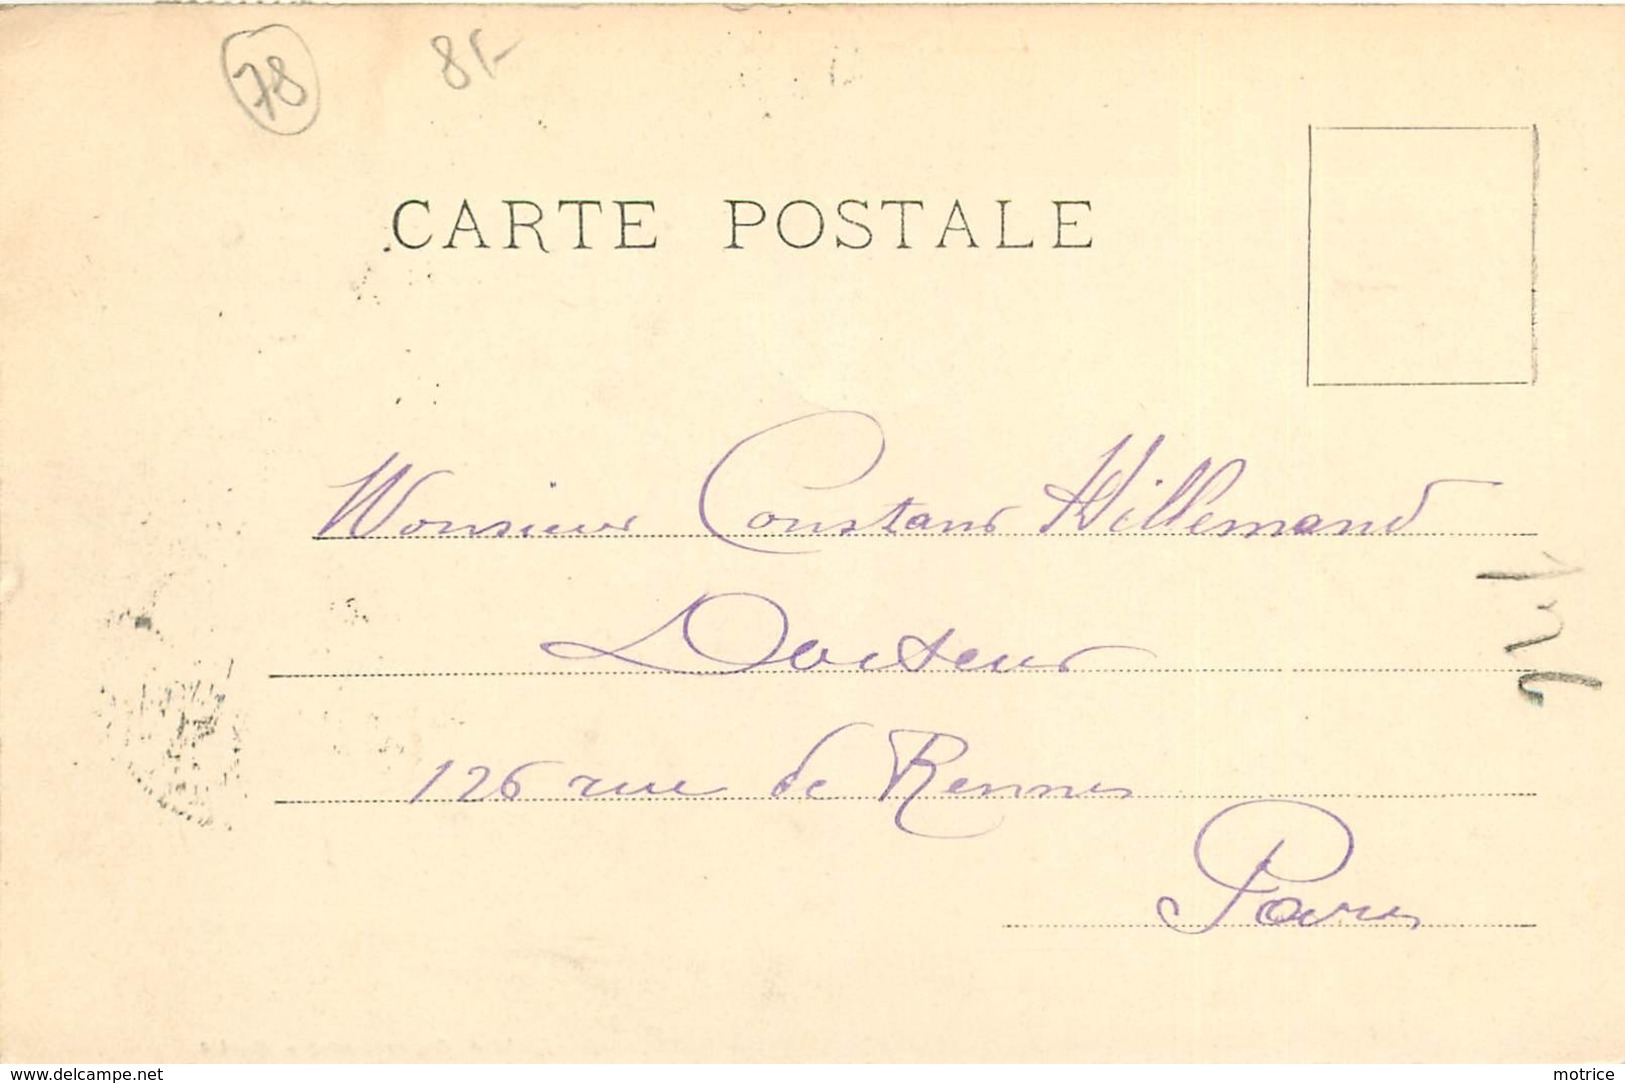 78
CARTE POSTALE
Monsieur Constant Willemand
Docteur
126 rue de Rennes
Paris
www.delcampe.net
motrice